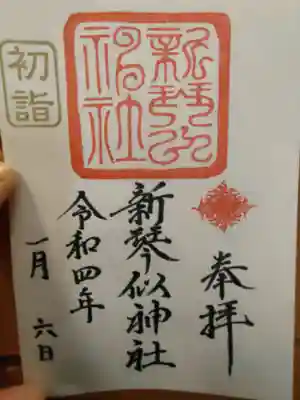 奉拝
新琴似神社
令和四年
一月六日
初詣
新琴似
神社